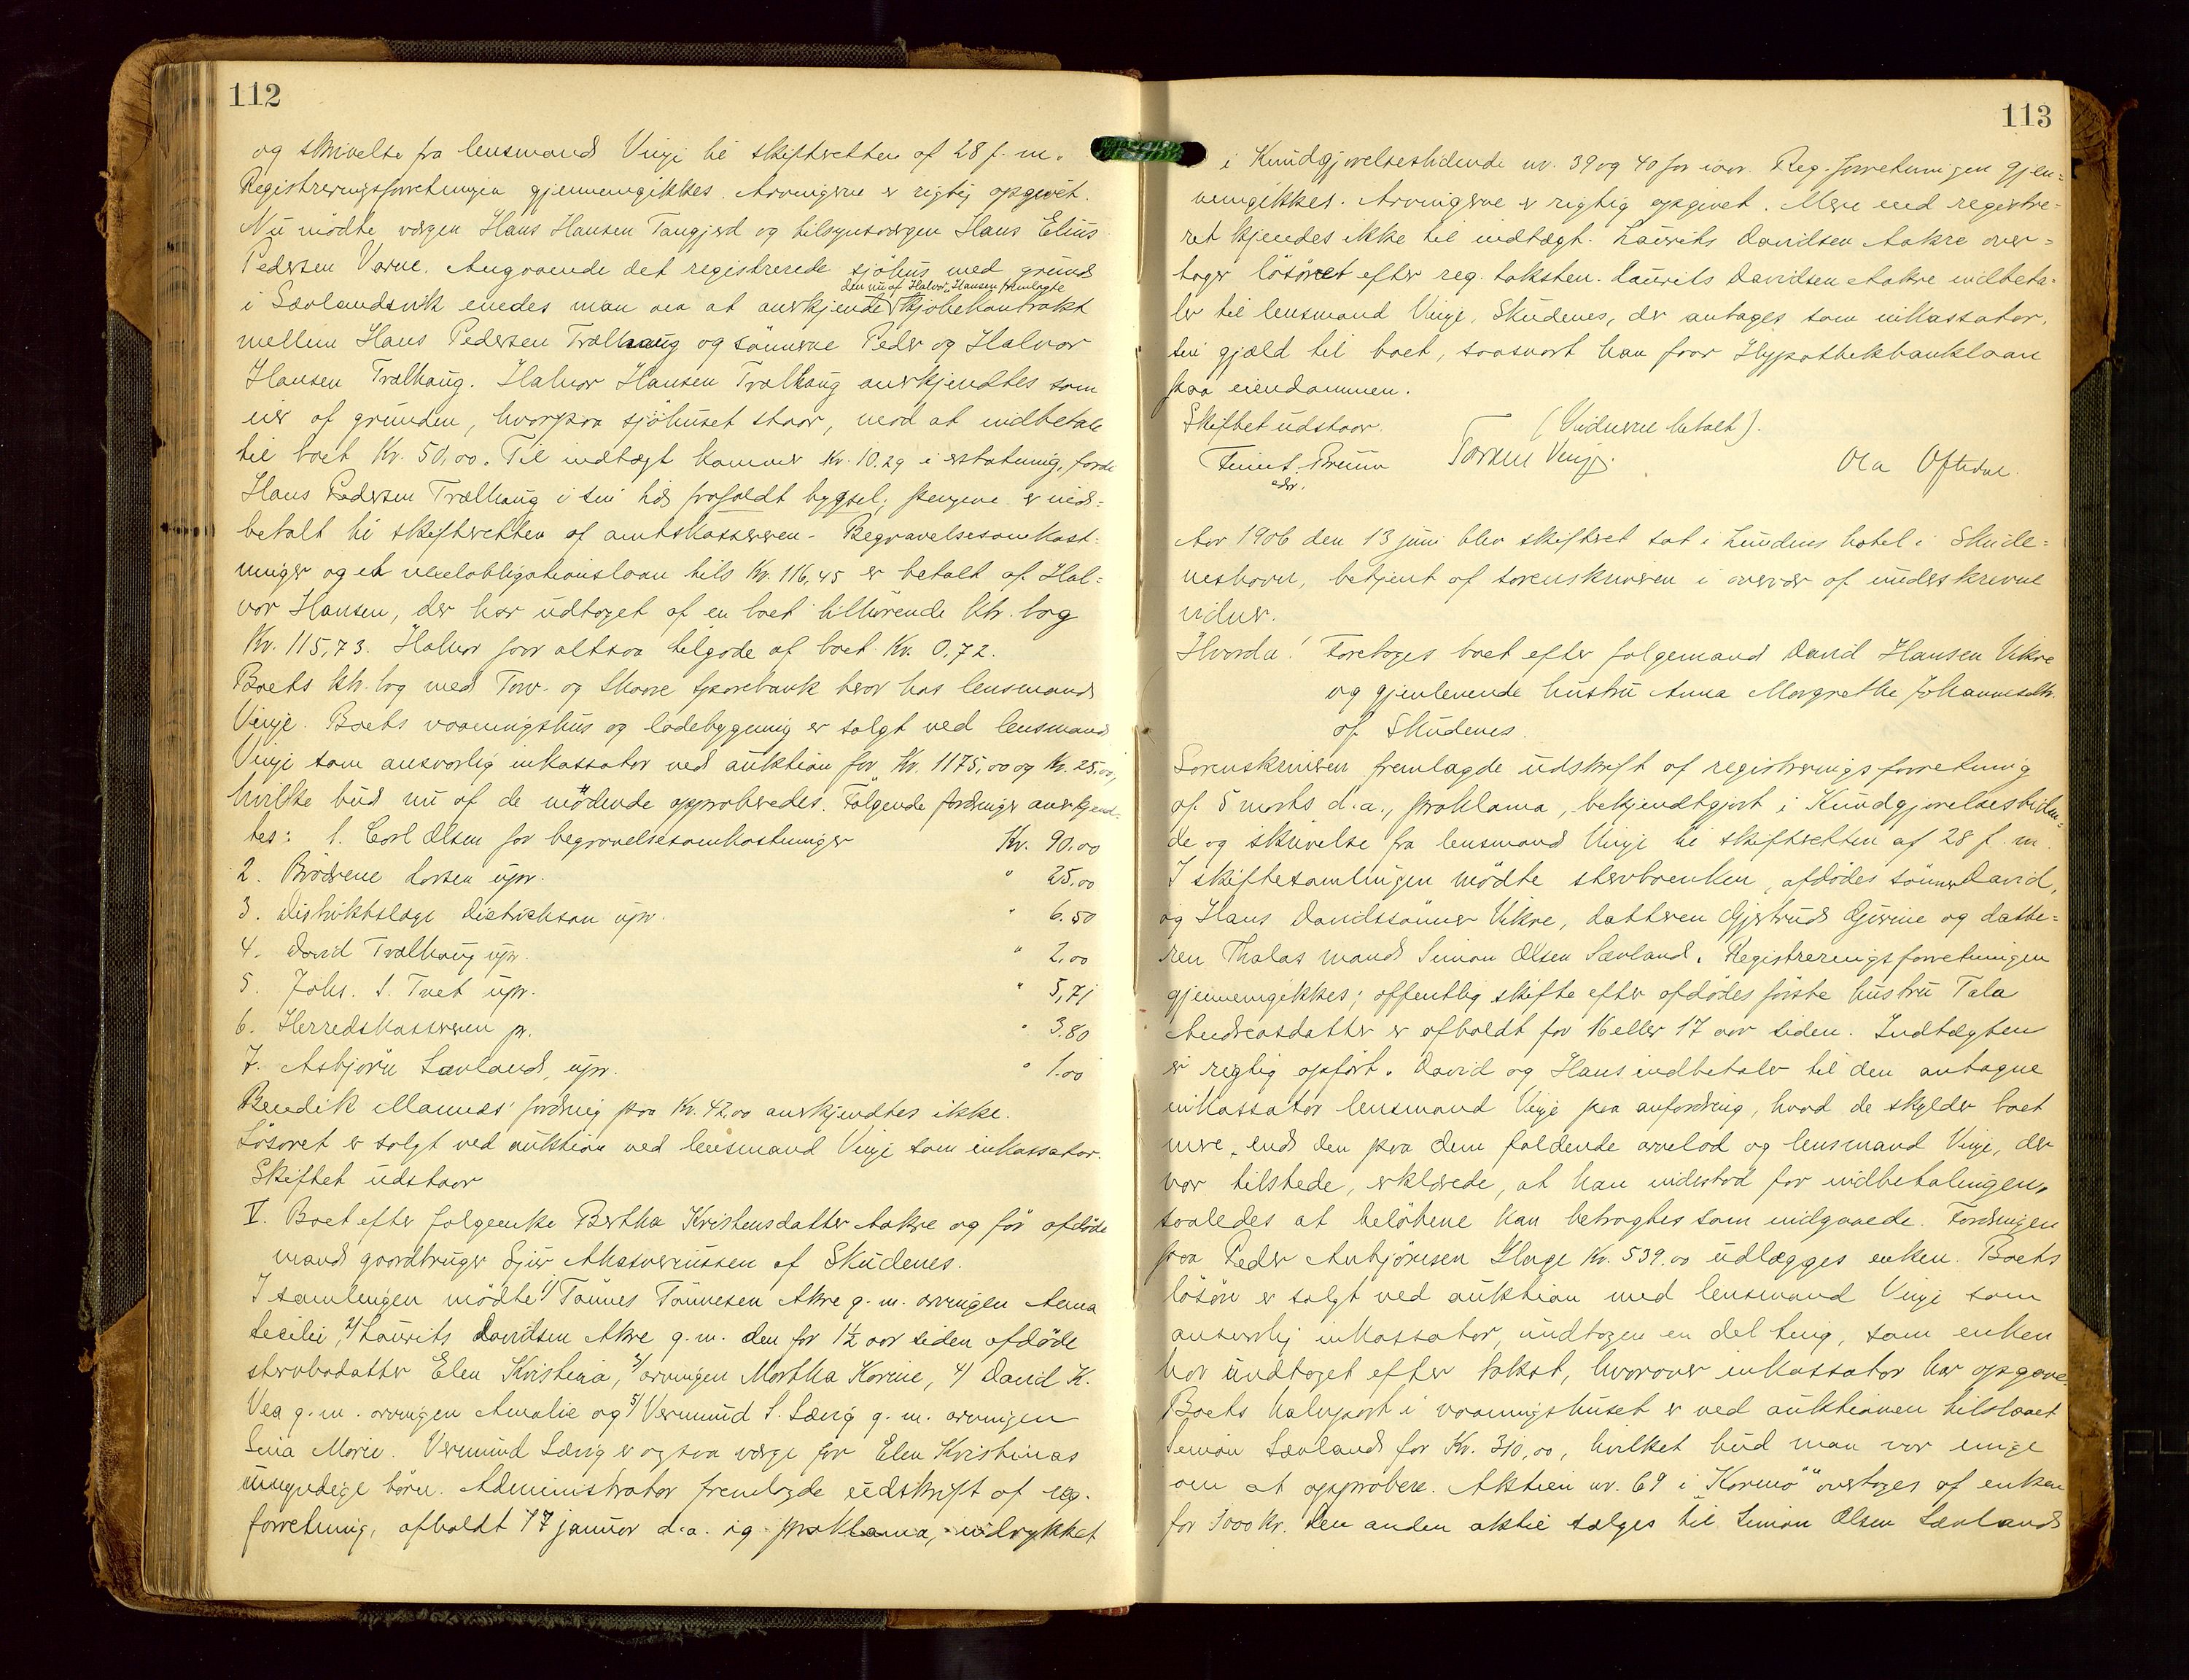 112
og skrivelse fra lensmand Vinje til skifteretten af 28 f. m.
Registreringsforretningen gjennemgikkes. Arvingerne er rigtig opgivet.
Nu mödte værgen Hans Hansen Tangjerd og tilsynsværgen Hans Elius
Pedersen Varne. Angaaende det registrerede sjöhus med grund
den nu af Halvor Hansen fremlagte
i Sævlandsvik enedes man om at anerkjende kjöbekontrakt
mellem Hans Pedersen Trælhaug og sönnerne Peder og Halvor
Hansen Trælhaug. Halvor Hansen Trælhaug anerkjendtes som
eier af grunden, hvorpaa sjöhuset staar, mod at indbetale
til boet Kr. 50,00. Til indtægt kommer Kr. 10.29 i erstatning, fordi
Hans Pedersen Trælhaug i sin tid frafaldt bygsel; pengene er ind=
betalt til skifteretten af amtskassereren. Begravelsesomkost=
ninger og et vexelobligationslaan tils Kr. 116,45 er betalt af Hal=
vor Hansen, der har udtaget af en boet tilhörende ktr. bog
Kr. 115,73. Halvor faar altsaa tilgode af boet Kr. 0,72.
Boets ktr. bog med Torv. og Skaare sparebank beror hos lensmand
Vinje. Boets vaaningshus og ladebygning er solgt ved lensmand
Vinje som ansvarlig inkassator ved auktion for Kr. 1175,00 og Kr. 25,00,
hvilke bud nu af de mödende approberedes. Fölgende fordringer anerkjend=
tes: 1. Carl Olsen for begravelsesomkostninger Kr. 90.00
2. Brödrene Larsen upr. " 25.00
3. Distriktslæge Dietrichson upr. " 6.50
4. David Trælhaug upr. " 2.00
5. Johs. S. Tvet upr. " 5,71
6. Herredskassereren pr. " 3.80
7. Asbjörn Sævland, upr. " 1.00
Bendik Mannes' fordring paa Kr. 42.00 anerkjendtes ikke.
Lösöret er solgt ved auktion ved lensmand Vinje som inkassator.
Skiftet udstaar
V. Boet efter folgeenke Bertha Kristensdatter Aakre og för afdöde
mand gaardbruger Sjur Ahasveriussen af Skudenes.
I samlingen mödte 1/ Tönnes Tönnesen Akre g. m. arvingen Anna
Cecilie, 2/ Laurits Davidsen Akre g. m. den for 1½ aar siden afdöde
stervbodatter Elen Kristina, 3/ arvingen Martha Karine, 4/ David K.
Vea g. m. arvingen Amalie og 5/ Vermund S. Sævig g. m. arvingen
Sina Marie. Vermund Sævig er ogsaa værge for Elen Kristinas
umyndige börn. Administrator fremlagde udskrift af reg.
forretning, afholdt 17 januar d.a. og proklama, indrykket
113
i Kundgjörelsestidende nr. 39 og 40 for iaar. Reg. forretningen gjen=
nemgikkes. Arvingerne er rigtig opgivet. Mere end registre=
ret kjendes ikke til indtægt. Laurits Davidsen Aakre over=
tager lösöret efter reg. taksten. Laurits Davidsen Aakre indbeta=
ler til lensmand Vinje, Skudenes, der antages som inkassator,
sin gjæld til boet, saasnart han faar Hypothekbanklaan
paa eiendommen.
Skiftet udstaar. (Vidnerne betalt).
Bruun Torkel Vinje. Ola Oftedal.
edr.
Aar 1906 den 13 juni blev skifteret sat i Lundens hotel i Skude=
neshavn, betjent af sorenskriveren i overvær af underskrevne
vidner.
Hvorda! Foretoges boet efter folgemand David Hansen Vikre
og gjenlevende hustru Anna Margrethe Johannesdtr.
af Skudenes.
Sorenskriveren fremlagde udskrift af registreringsforretning
af 5 marts d.a., proklama, bekjendtgjort i Kundgjörelsestiden=
de og skrivelse fra lensmand Vinje til skifteretten af 28 f. m.
I skiftesamlingen mödte stervboenken, afdödes sönner David,
og Hans Davidssönner Vikre, datteren Gjertrud Gurine og datte=
ren Thalas mand Simon Olsen Sævland. Registreringsforretningen
gjennemgikkes; offentlig skifte efter afdödes förste hustru Tala
Andreasdatter er afholdt for 16 eller 17 aar siden. Indtægten
er rigtig opfört. David og Hans indbetaler til den antagne
inkassator lensmand Vinje paa anfordring, hvad de skylder boet
mere, end den paa dem faldende arvelod og lensmand Vinje, der
var tilstede, erklærede, at han inderstod for indbetalingen,
saaledes at belöbene kan betragtes som indgaaede. Fordringen
paa Peder Anbjörnsen Hauge Kr. 539.00 udlægges enken. Boets
lösöre er solgt ved auktion med lensmand Vinje som
ansvarlig inkassator, undtagen en del ting, som enken
har undtaget efter takst, hvorover inkassator har opgave.
Boets halvpart i vaaningshuset er ved auktionen tilslaaet
Simon Sævland for Kr. 310,00, hvilket bud man var enige
om at approbere. Aktien nr. 69 i "Karmö" overtages af enken
for 3000 kr. Den anden aktie sælges til Simon Olsen Sævland